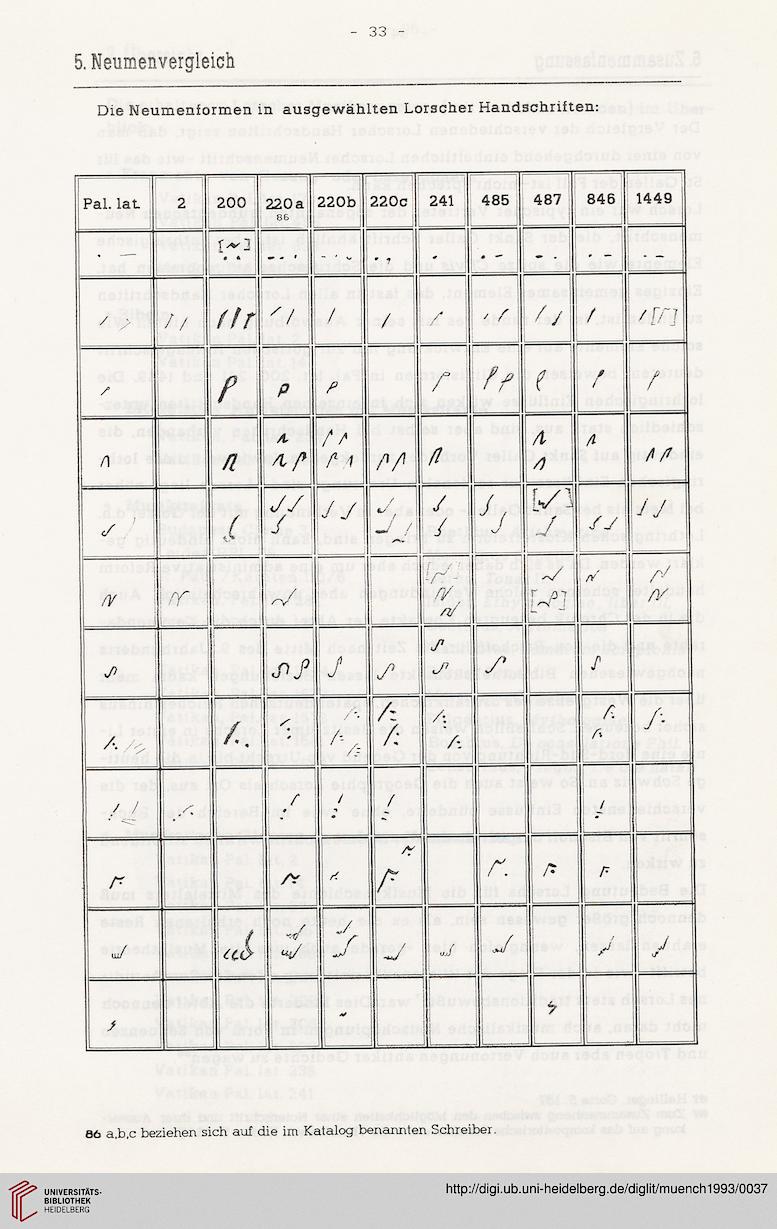 - 33 -
5. Neumenvergleich
Die Neumenformen in ausgewählten Lorscher Handschriften:
Pal. lat. 2 200 220a 220b 220c 241 485 487 846 1449
86
86 a,b,c beziehen sich auf die im Katalog benannten Schreiber.
UNIVERSITÄTS-
BIBLIOTHEK
HEIDELBERG
http://digi.ub.uni-heidelberg.de/diglit/muench1993/0037